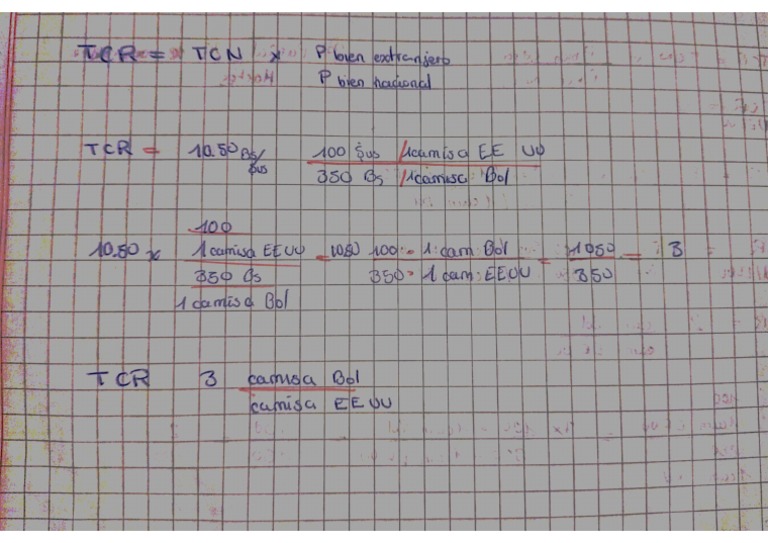 TCR = TCN x P bien extranjero
P bien nacional
TCR = 10.50 Bs/$us 100 $us /1camisa EE UU
350 Bs /1camisa Bol
100
10.50 x 1 camisa EEUU = 1050 100 · 1 cam Bol = 1050 = 3
350 Bs 350 · 1 cam EEUU 350
1 camisa Bol
TCR 3 camisa Bol
camisa EE UU